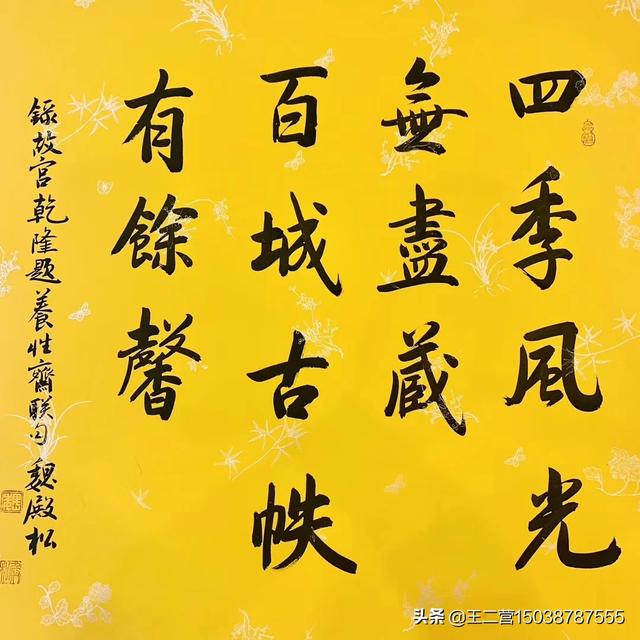 四季風光
無盡蔵
百城古帙
有餘馨
録故宫乾隆题養性齋联句魏殿松
头条 @王二营15038787555